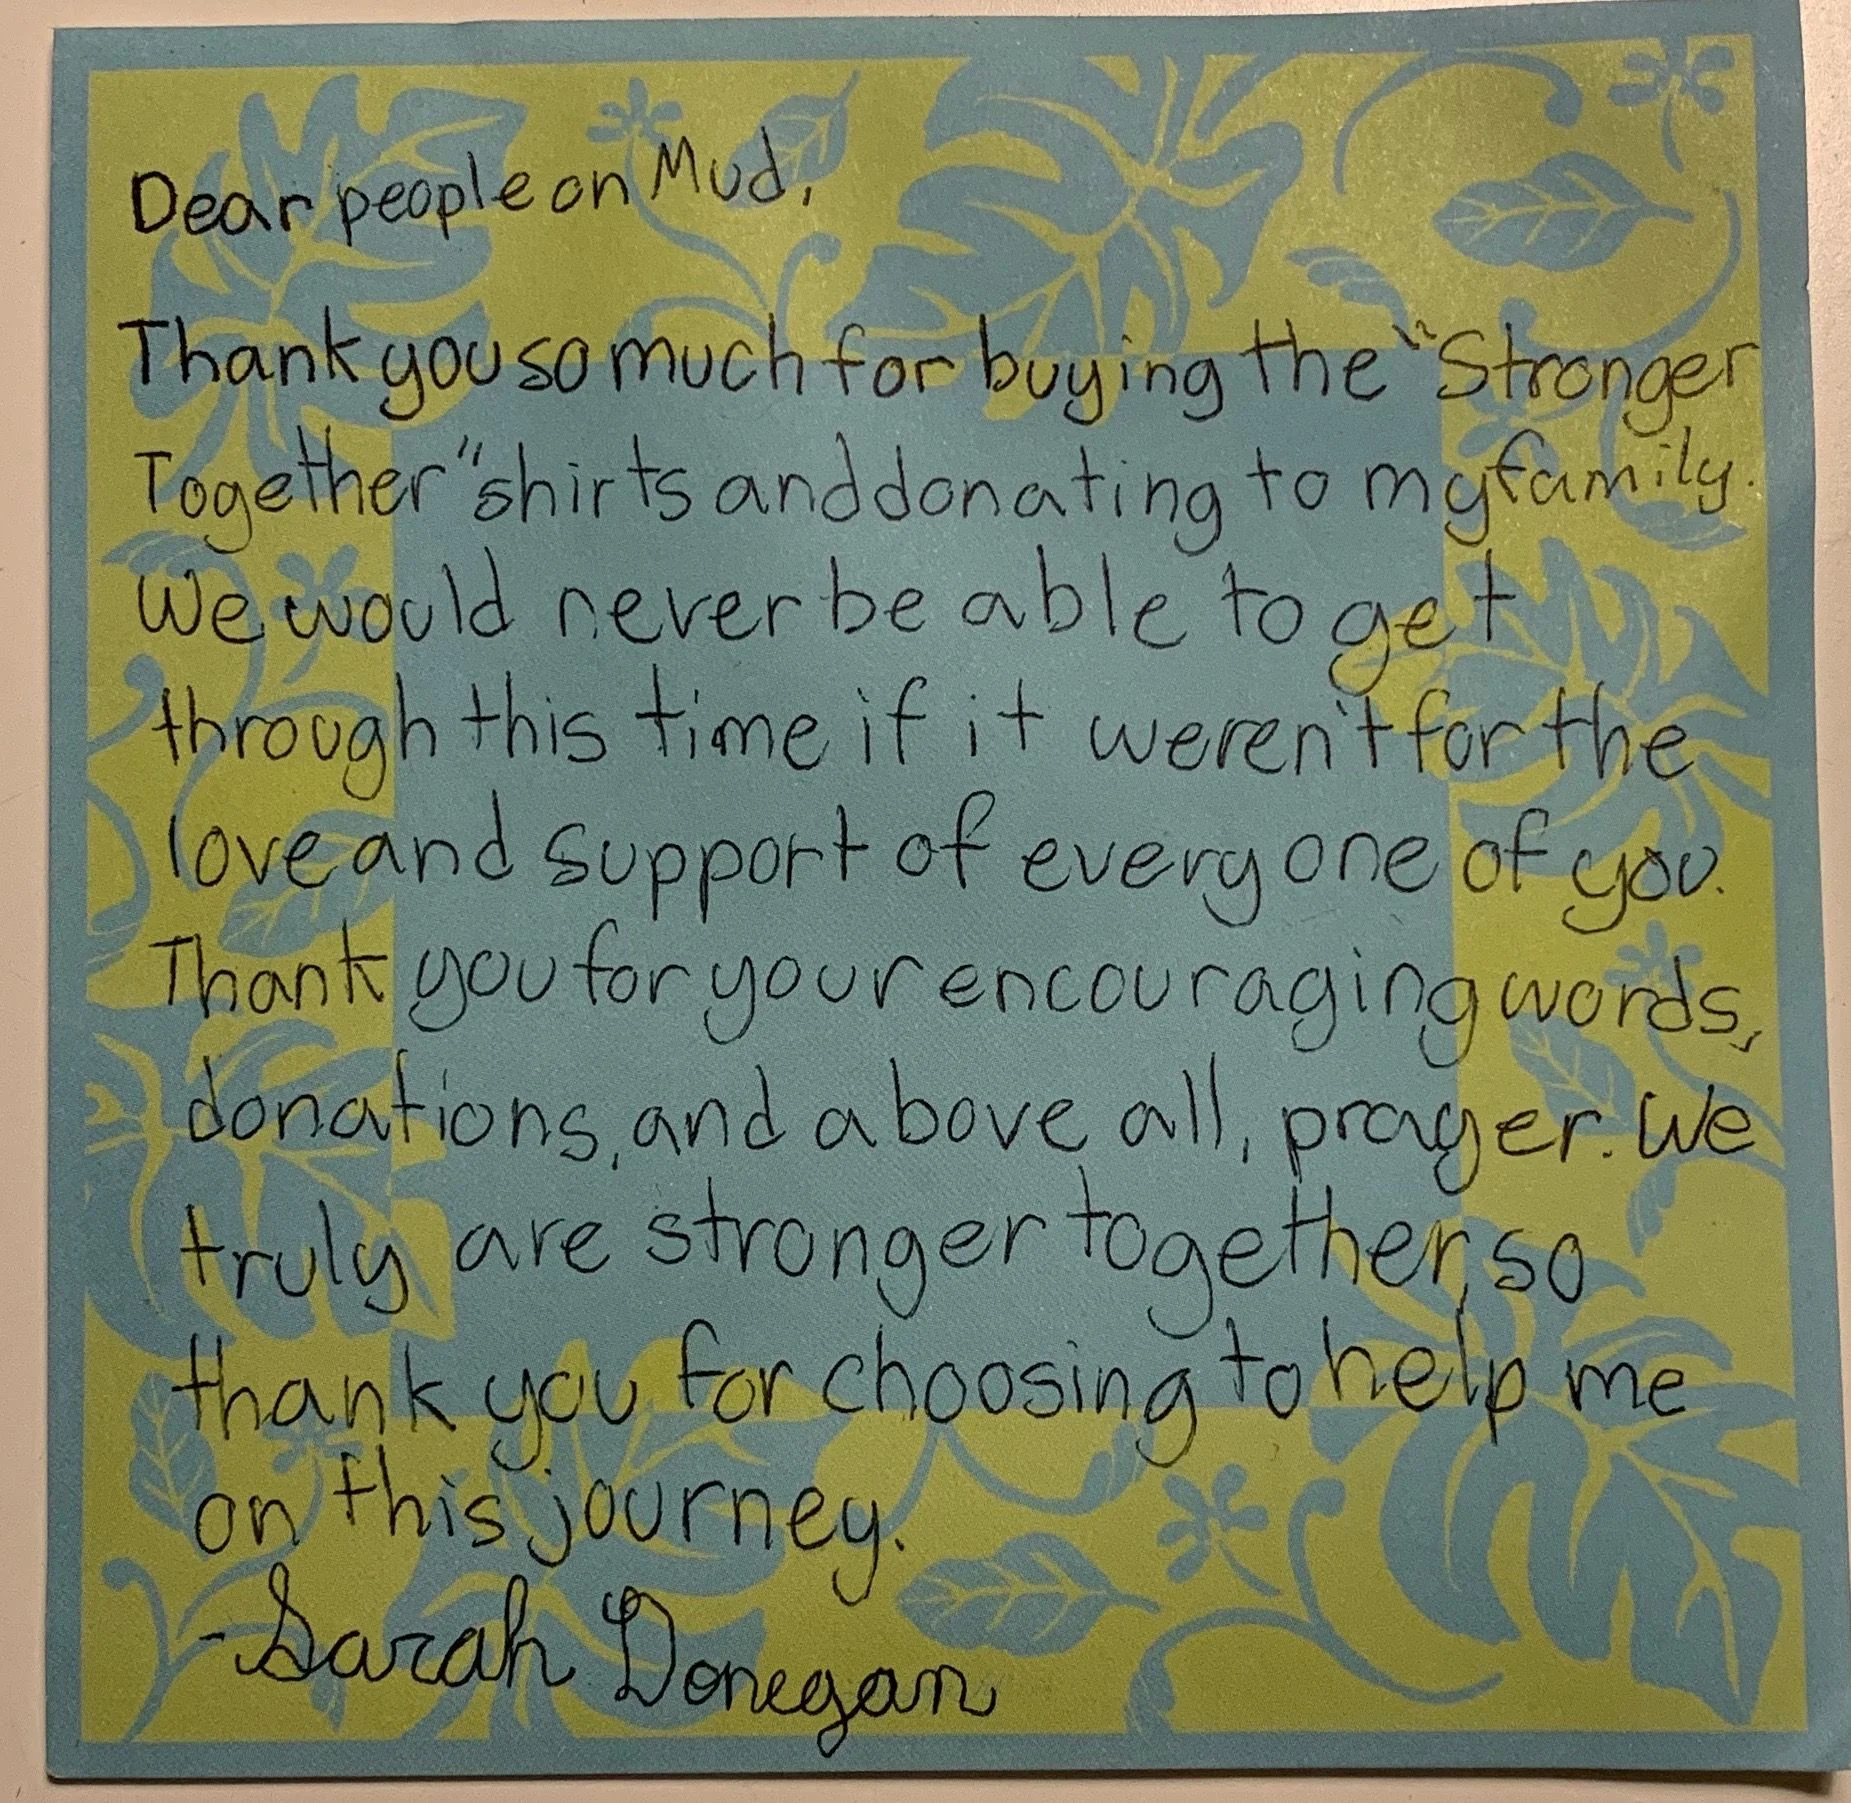 Dear people on Mud,
Thank you so much for buying the "Stronger
Together" shirts and donating to my family.
We would never be able to get
through this time if it weren't for the
love and support of every one of you.
Thank you for your encouraging words,
donations, and above all, prayer. We
truly are stronger together, so
thank you for choosing to help me
on this journey.
-Sarah Donegan